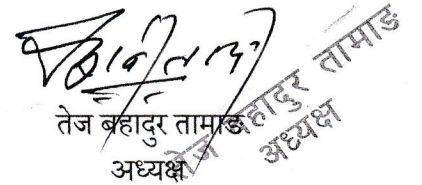 तेज बहादुर तामाङ
अध्यक्ष
तेज बहादुर तामाङ
अध्यक्ष